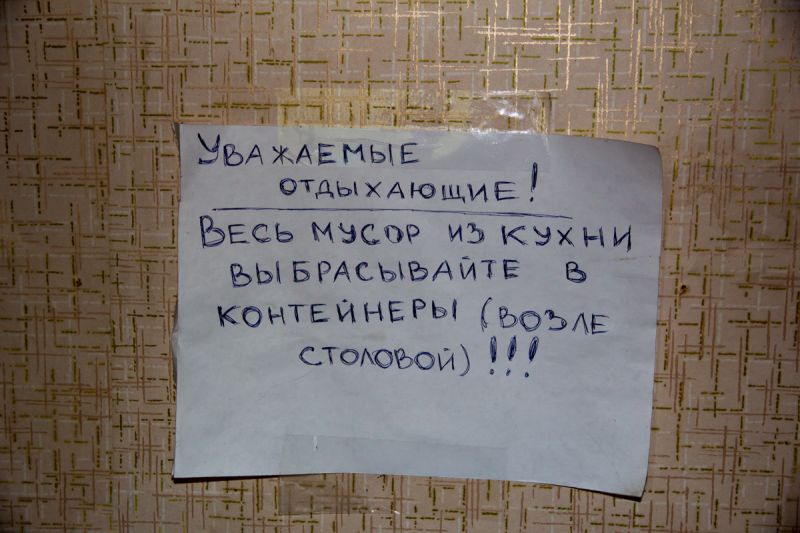 Уважаемые
отдыхающие!
Весь мусор из кухни
выбрасывайте в
контейнеры (возле
столовой)!!!